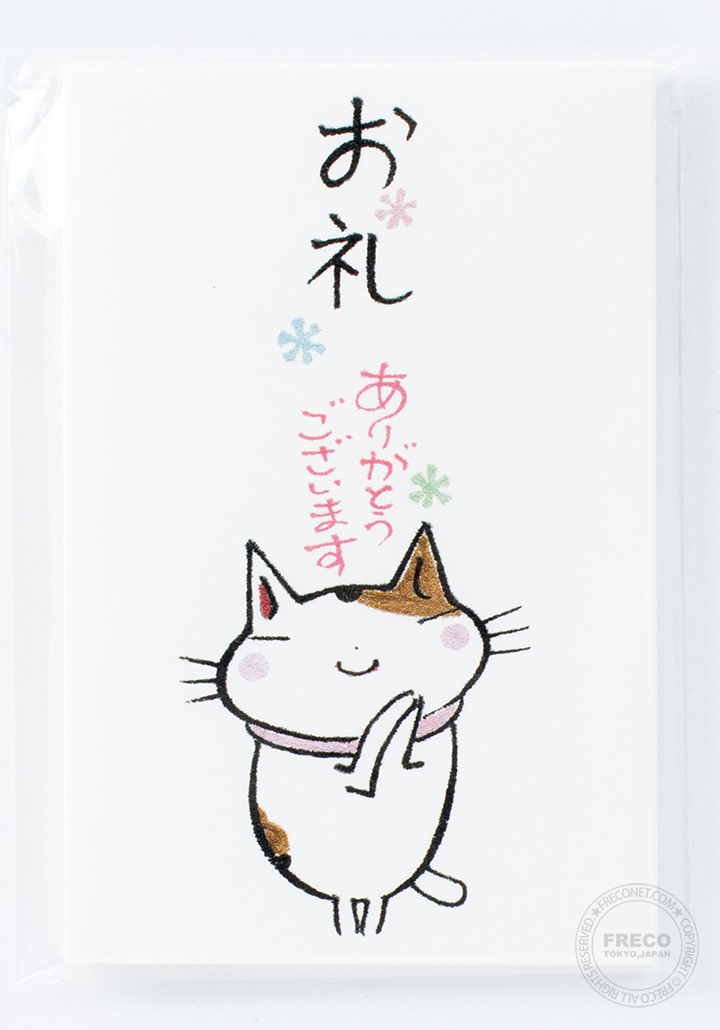 お礼
ありがとう
ございます
FRECONET.COM★COPYRIGHT © FRECO ALL RIGHTS RESERVED.★
FRECO
TOKYO,JAPAN